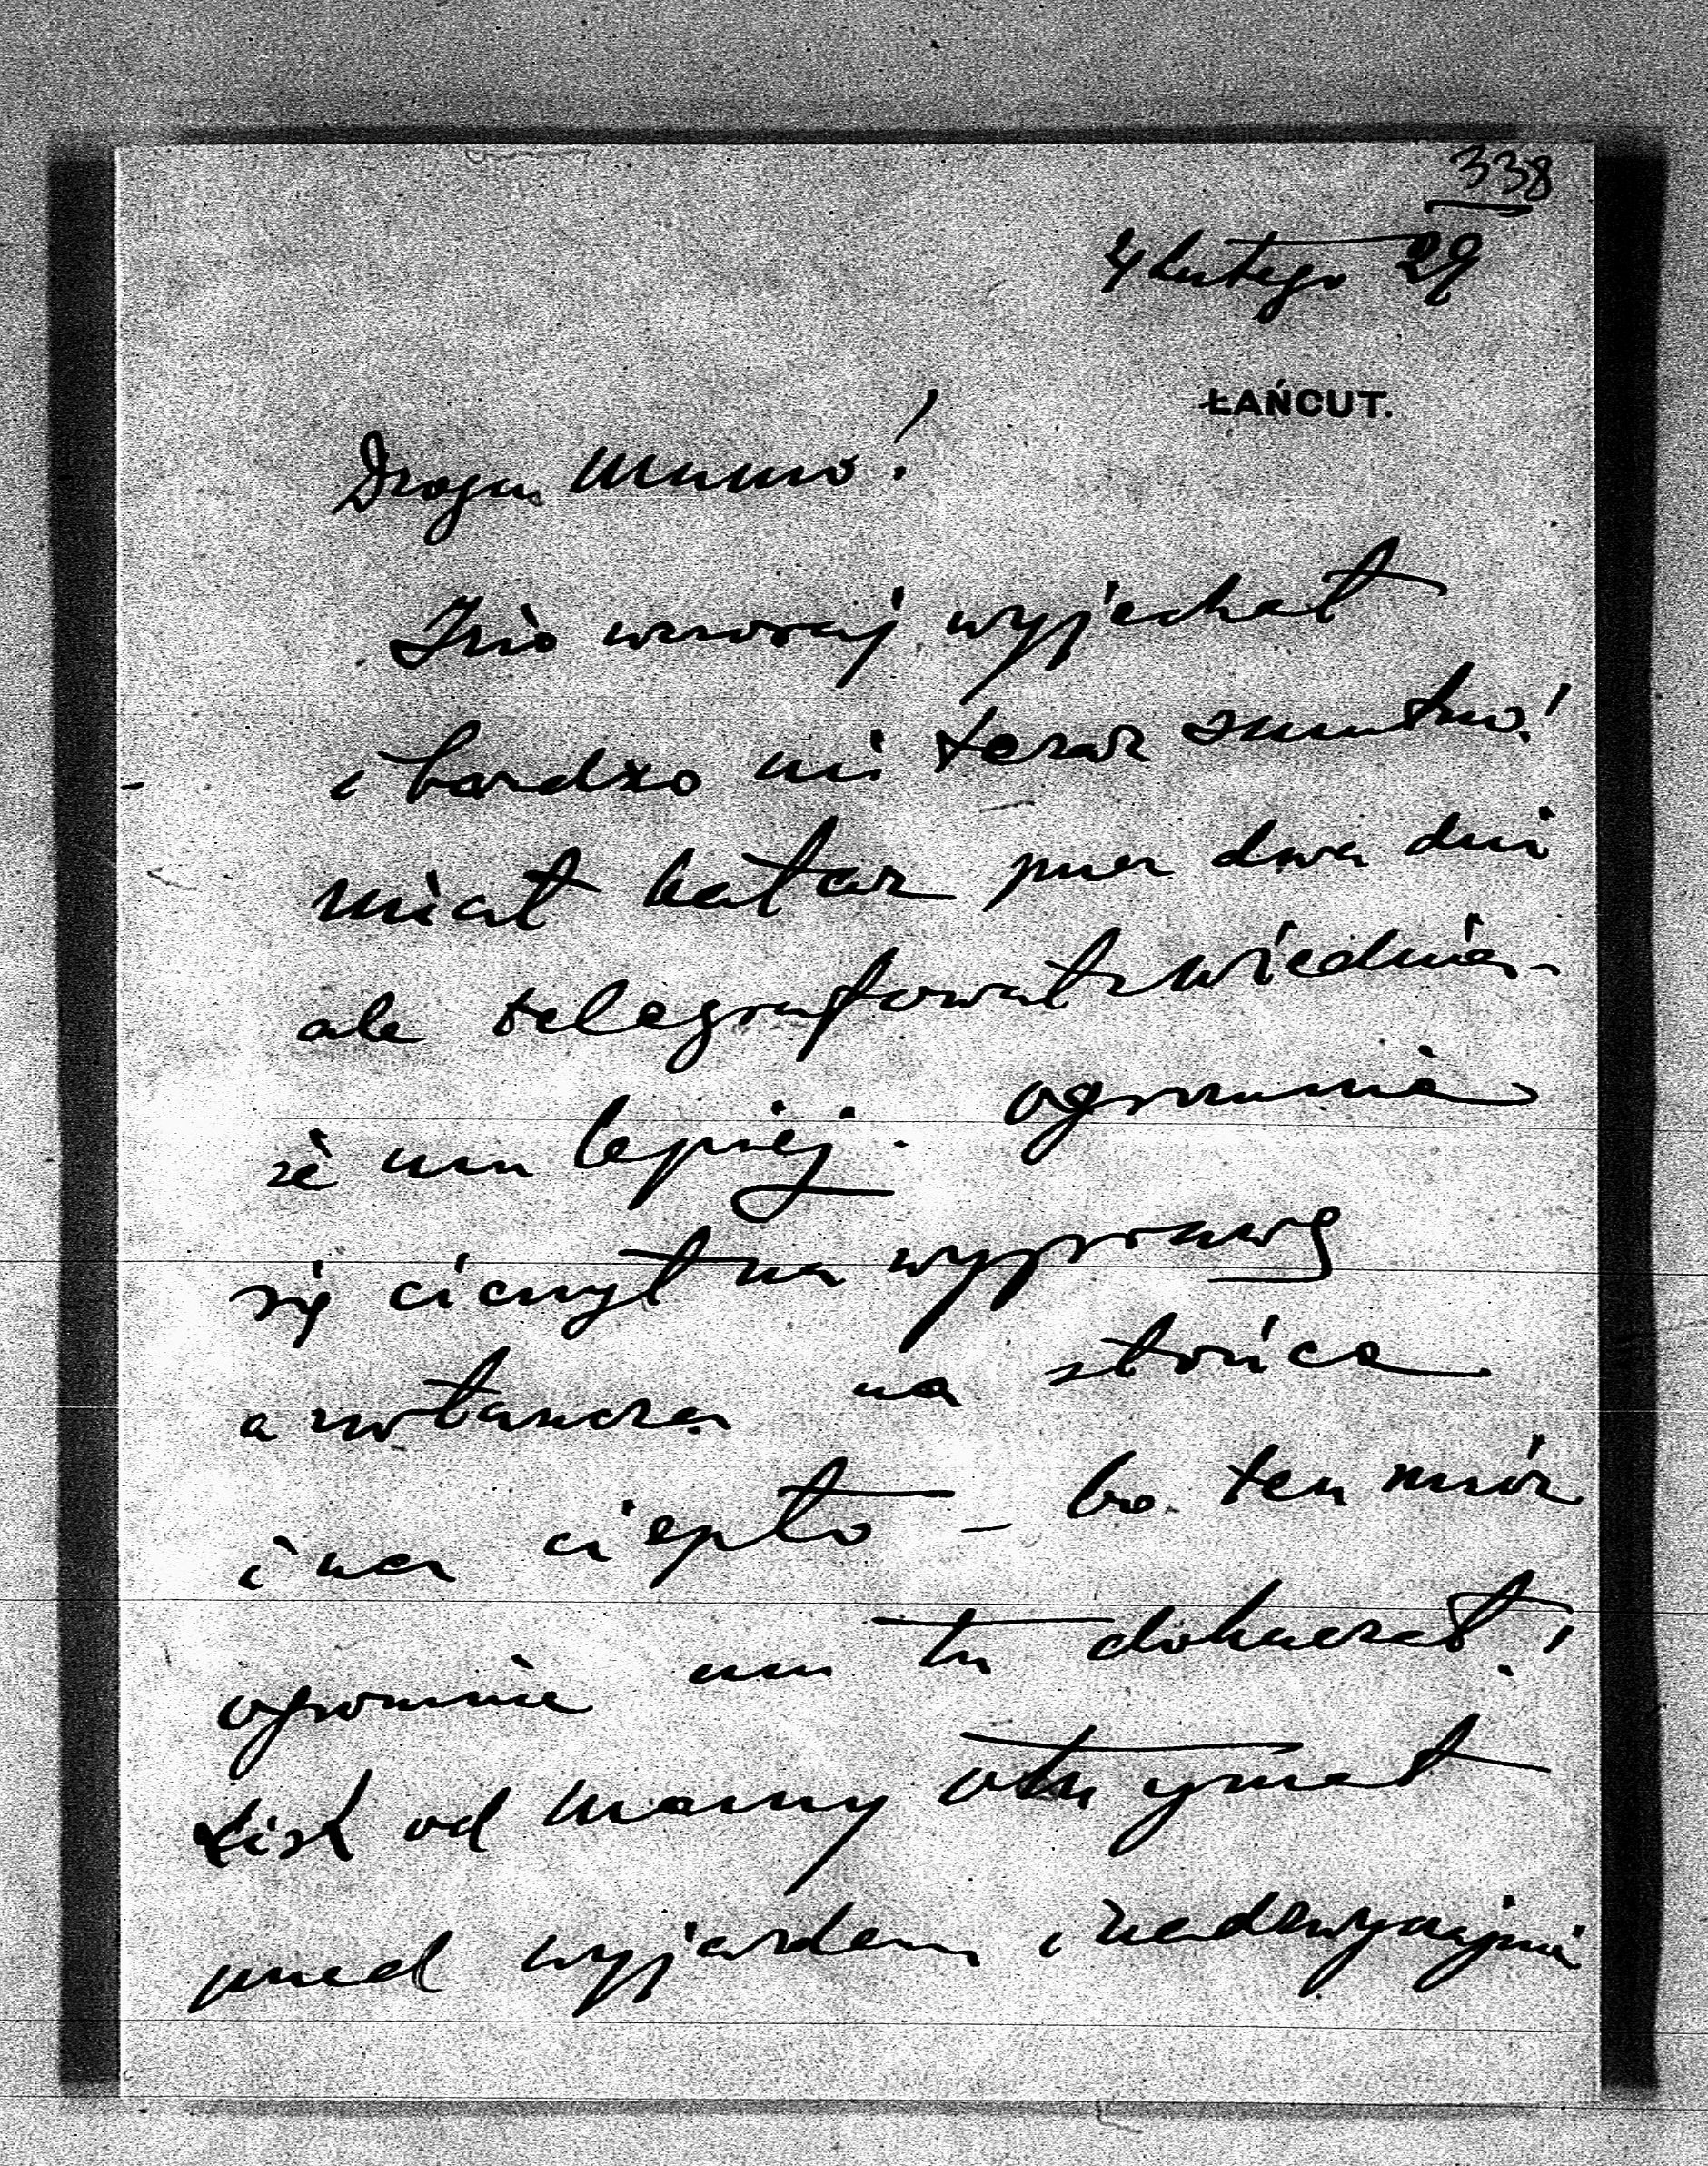 338
4 Lutego 29
ŁAŃCUT.
Droga Mamo!
wczoraj wyjechał
i bardzo mi teraz smutno!
miał katar przez dwa dni
ale telegrafował z Wiednia
że mu lepiej. ogromnie
się cieszył na wyprawę
a zwłaszcza na słońce
i na ciepło – bo ten mróz
ogromnie mu tu dokuczał!
List od Mamy otrzymał
przed wyjazdem i nadzwyczajnie